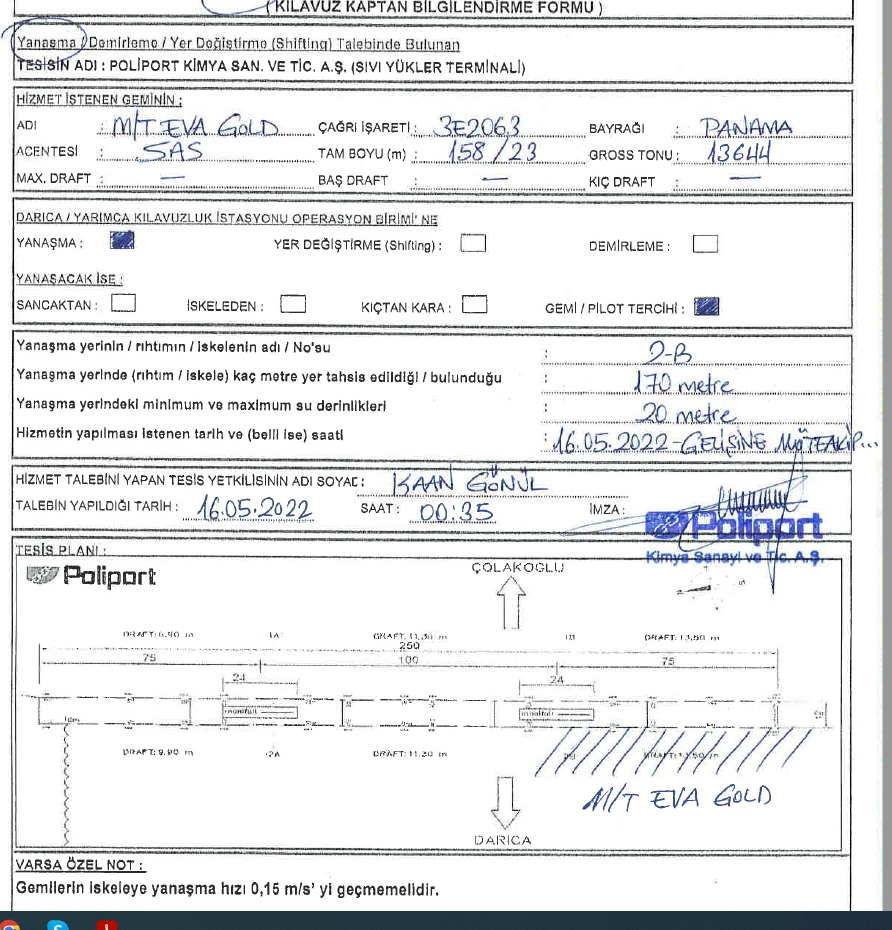 ( KILAVUZ KAPTAN BİLGİLENDİRME FORMU )
Yanaşma / Demirleme / Yer Değiştirme (Shifting) Talebinde Bulunan
TESİSİN ADI : POLİPORT KİMYA SAN. VE TİC. A.Ş. (SIVI YÜKLER TERMİNALİ)
HİZMET İSTENEN GEMİNİN :
ADI : M/T EVA GOLD ÇAĞRI İŞARETİ : 3E2063 BAYRAĞI : PANAMA
ACENTESİ : SAS TAM BOYU (m) : 158 / 23 GROSS TONU : 13644
MAX. DRAFT : — BAŞ DRAFT : — KIÇ DRAFT : —
DARICA / YARIMCA KILAVUZLUK İSTASYONU OPERASYON BİRİMİ' NE
YANAŞMA : YER DEĞİŞTİRME (Shifting) : DEMİRLEME :
YANAŞACAK İSE :
SANCAKTAN : İSKELEDEN : KIÇTAN KARA : GEMİ / PİLOT TERCİHİ :
Yanaşma yerinin / rıhtımın / iskelenin adı / No'su : 2-B
Yanaşma yerinde (rıhtım / iskele) kaç metre yer tahsis edildiği / bulunduğu : 170 metre
Yanaşma yerindeki minimum ve maximum su derinlikleri : 20 metre
Hizmetin yapılması istenen tarih ve (belli ise) saati : 16.05.2022-GELİŞİNE MÜTEAKİP...
HİZMET TALEBİNİ YAPAN TESİS YETKİLİSİNİN ADI SOYAD : KAAN GÖNÜL
TALEBİN YAPILDIĞI TARİH : 16.05.2022 SAAT : 00:35 İMZA :
Poliport
Kimya Sanayi ve Tic. A.Ş.
TESİS PLANI :
Poliport
ÇOLAKOĞLU
DRAFT: 1A DRAFT: 11,30 m 1B DRAFT: 13,50 m
250
75 100 75
24 24
manifolt manifolt
DRAFT: 9,90 m 2A DRAFT: 11.30 m 2B
M/T EVA GOLD
DARICA
VARSA ÖZEL NOT :
Gemilerin iskeleye yanaşma hızı 0,15 m/s' yi geçmemelidir.